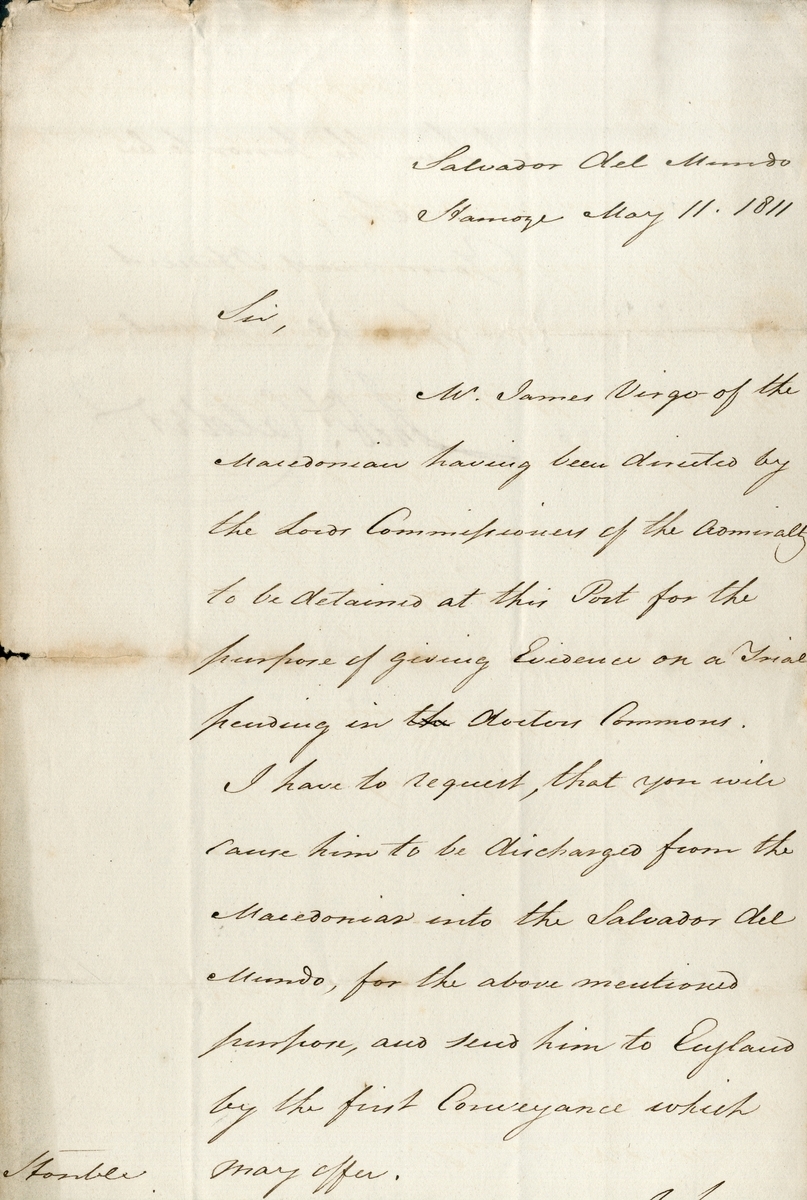 Salvador del Mundo
Hamoze May 11. 1811
Sir,
Mr. James Virgo of the
Macedonian having been directed by
the Lords Commissioners of the Admiralty
to be detained at this Port for the
purpose of giving Evidence on a Trial
pending in the doctors Commons.
I have to request, that you will
cause him to be discharged from the
Macedonian into the Salvador del
Mundo, for the above mentioned
purpose, and send him to England
by the first Conveyance which
may offer.
Honble